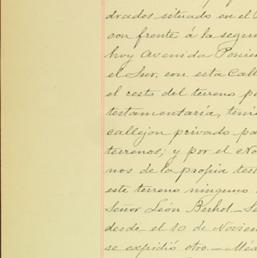 drados situado en el
con frente á la segun
hoy Avenida Ponien
el Sur, con esta Calle
el resto del terreno p
testamentaría, tenie
callejon privado pa
terrenos; y por el No
nos de la propia test
este terreno ninguno
Señor León Berhol. Se
desde el 10 de Noviem
se expidió otro. — Méx